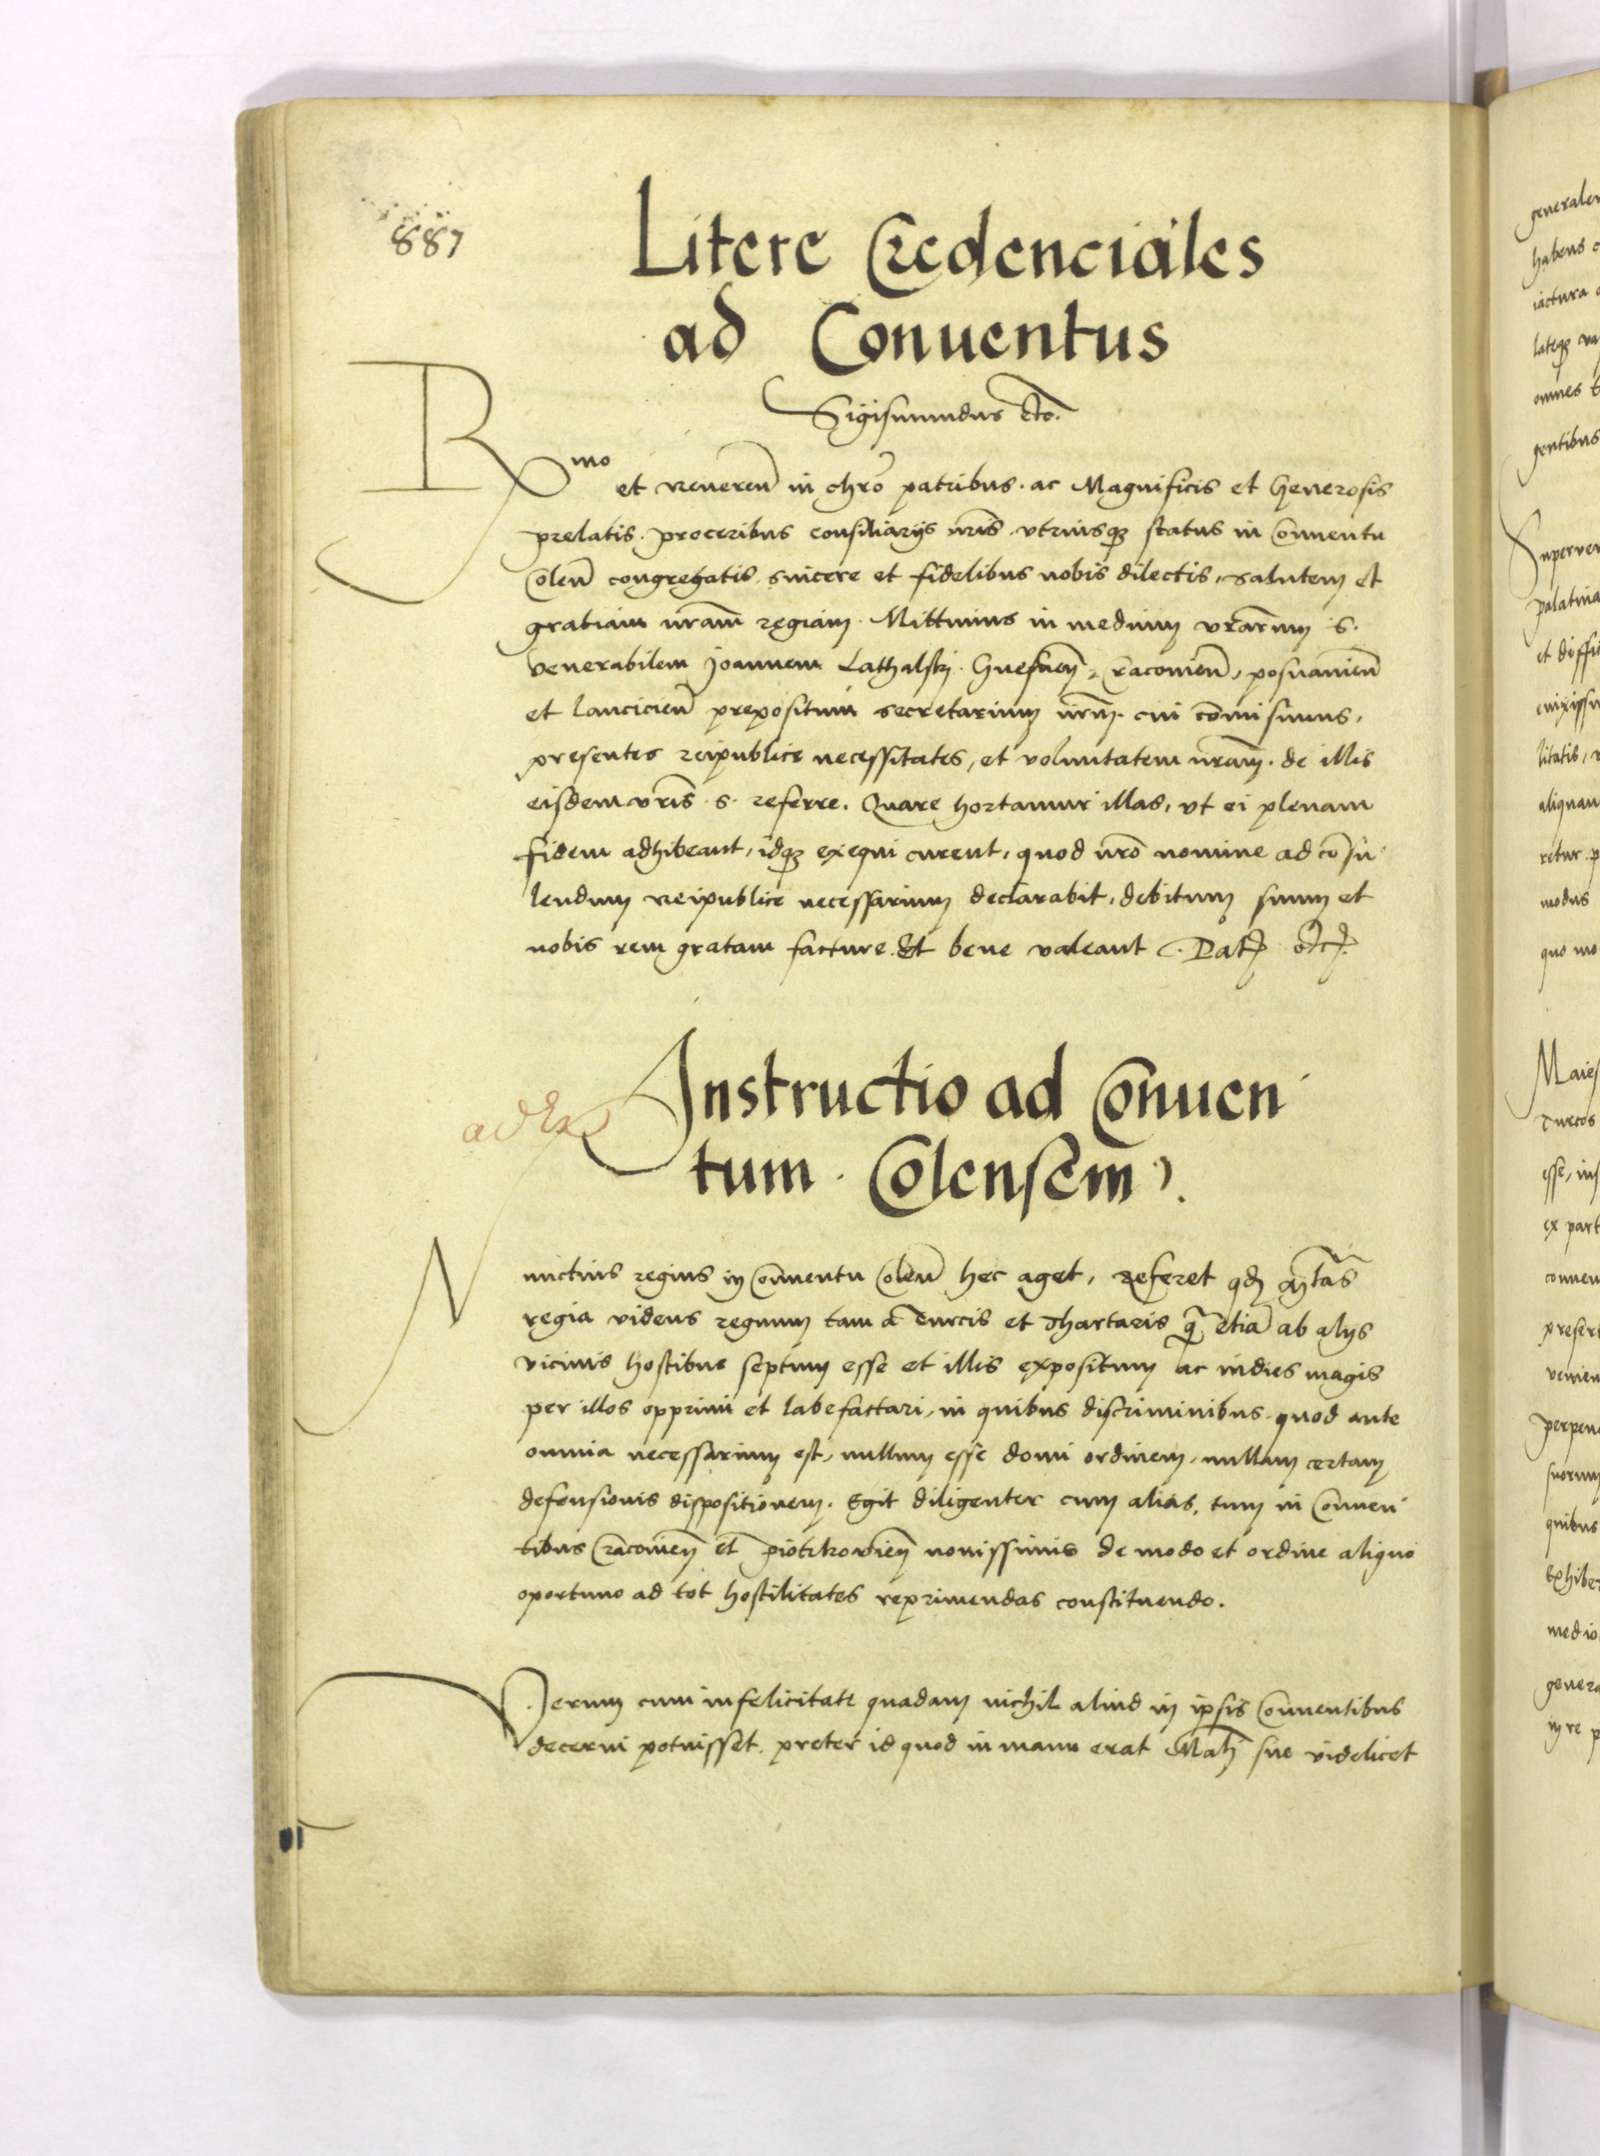 887
Litere Credenciales
ad Conuentus
Sigismundus etc.
Rmo et reueren̄ in chr̄o patribus . ac Magnificis et Generosis
prelatis . proceribus consiliarijs nr̄is . vtriusqꝫ status in Conuentu
Colen̄ congregatis . sincere et fidelibus nobis dilectis, salutem et
gratiam nr̄am regiam . Mittimus in medium vr̄arum s .
venerabilem Joannem Lathalski . Gnesnen̄ , Cracouien̄ , posnanien̄
et lancicien̄ prepositum secretarium nr̄m . cui com̄isimus ,
presentes reipublice necessitates, et voluntatem nr̄am . de illis
eisdem vr̄is . s . referre . Quare hortamur illas, vt ei plenam
fidem adhibeant, idqꝫ exequi curent, quod nr̄o nomine ad con̄su
lendum reipublice necessarium declarabit, debitum suum et
nobis rem gratam facture . Et bene valeant . Dat etc.
Instructio ad Conuen
tum . Colensem .
Nunctius regius in Conuentu Colen̄ hec aget, referet qd M̄tas
regia videns regnum tam a Turcis et Thartaris q̄ etiā ab alijs
vicinis hostibus septum esse et illis expositum ac indies magis
per illos opprimi et labefactari, in quibus discriminibus . quod ante
omnia necessarium est, nullum esse domi ordinem, nullam certam
defensionis dispositionem . Egit diligenter cum alias, tum in Conuen
tibus Cracouien̄ et piotrkouien̄ nouissimis de modo et ordine aliquo
oportuno ad tot hostilitates reprimendas constituendo .
Verum cum infelicitate quadam nichil aliud in ipsis Conuentibus
decerni potuisset . preter id quod in manu erat Maῑti sue videlicet